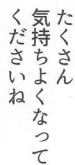 たくさん
気持ちよくなって
くださいね